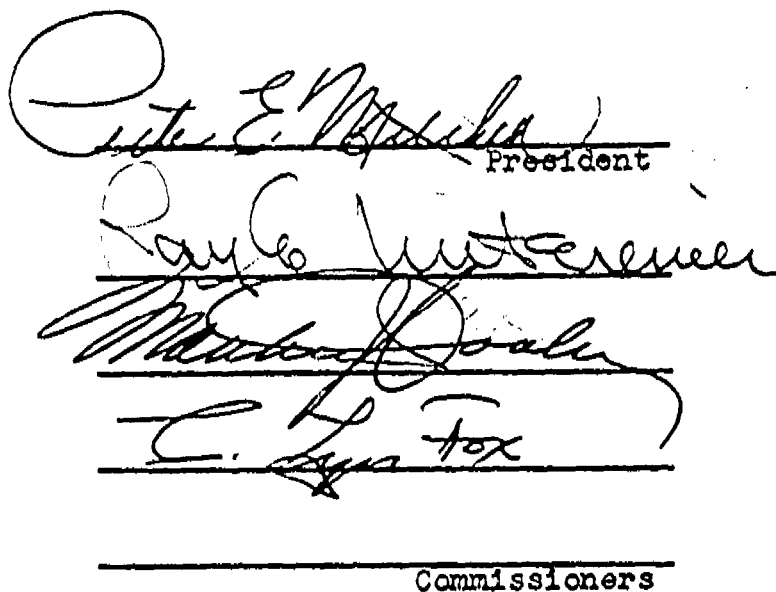 Peter E. Mitchell
President
Ray E. Untereiner
Matthew J. Dooley
C. Lyn Fox
Commissioners